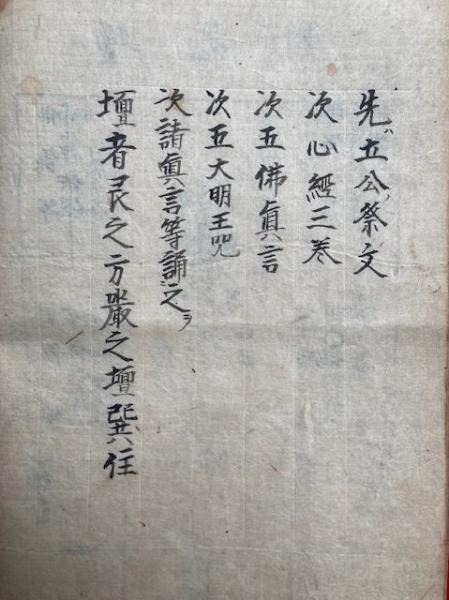 先立公祭文
次心經三巻
次五佛眞言
次五大明王咒
次諸眞言等誦之ヲ
壇者艮之方嚴之壇巽住